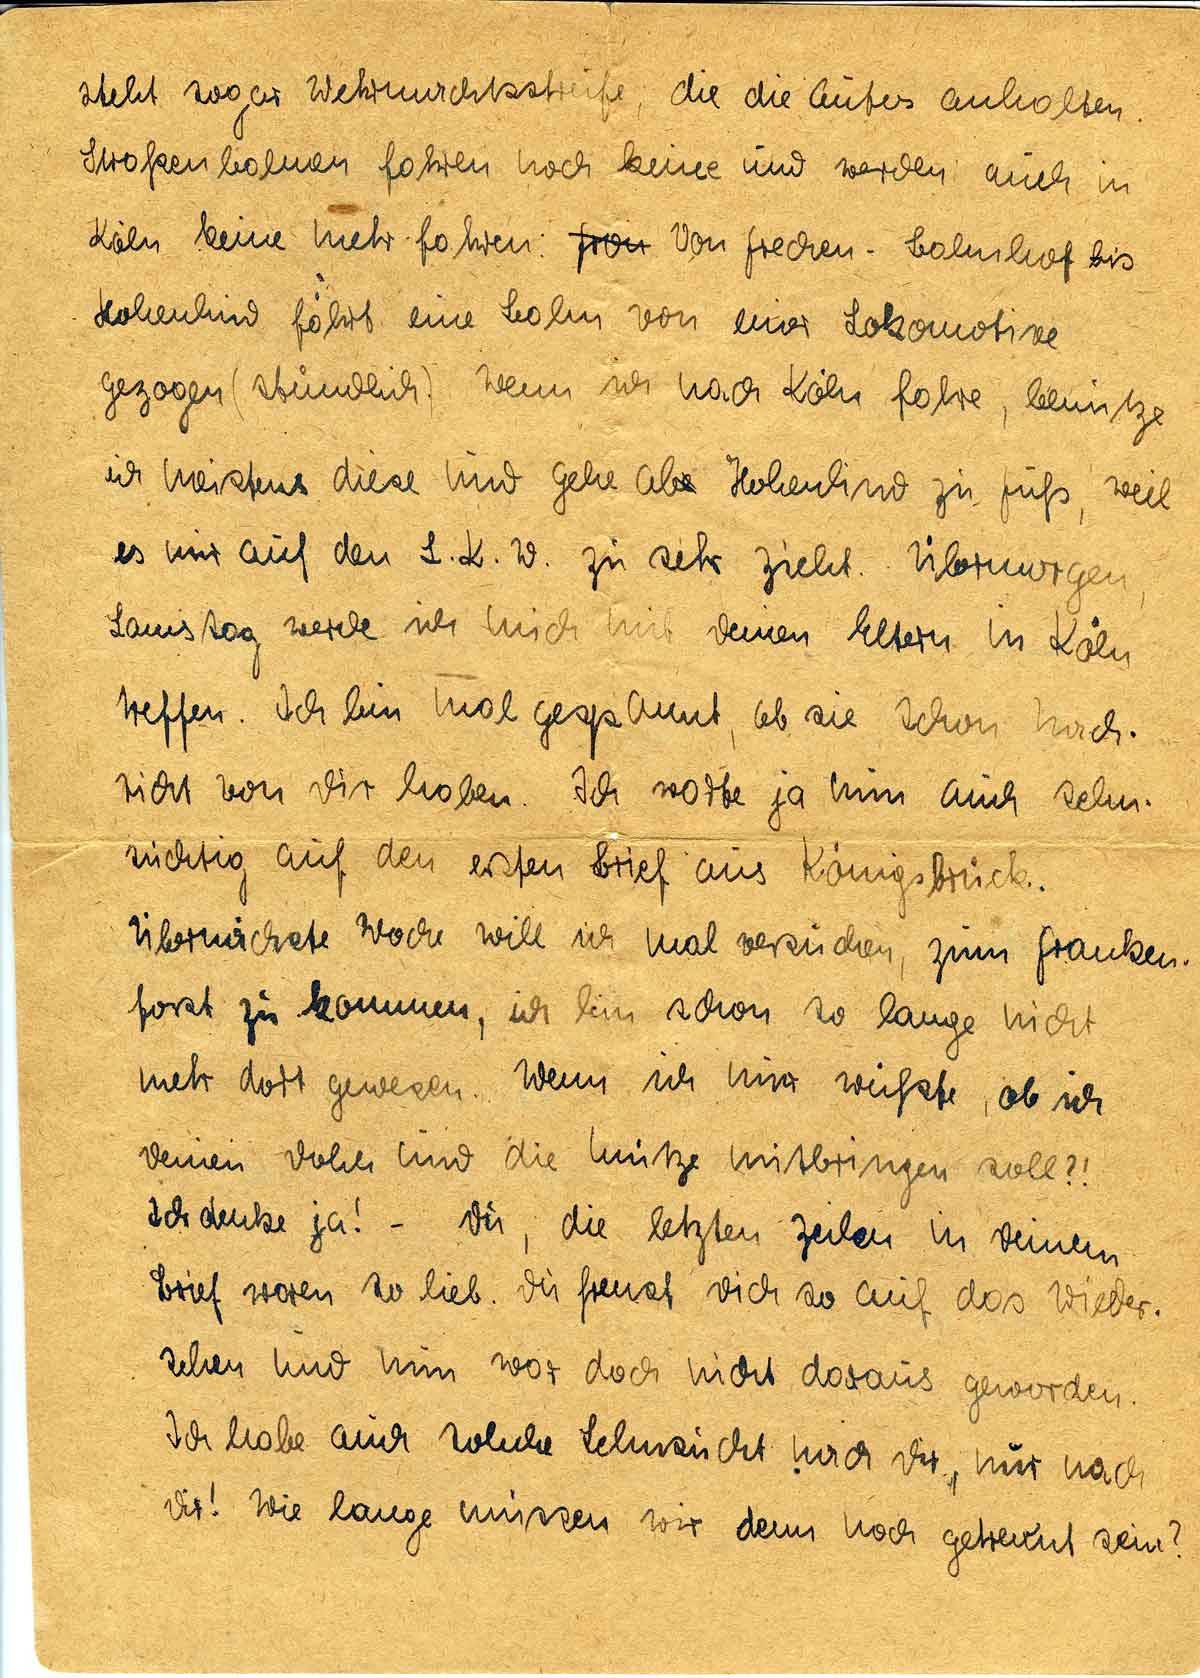 steht sogar Wehrmachtsstreife, die die Autos anhalten.
Straßenbahnen fahren noch keine und werden auch in
Köln keine mehr fahren. Von Frechen-Bahnhof bis
Hohenlind fährt eine Bahn von einer Lokomotive
gezogen (stündlich). Wenn ich nach Köln fahre, benütze
ich meistens diese und gehe ab Hohenlind zu Fuß, weil
es mir auf den L.K.W. zu sehr zieht. Übermorgen,
Samstag werde ich mich mit deinen Eltern in Köln
treffen. Ich bin mal gespannt, ob sie schon Nach-
richt von Dir haben. Ich warte ja nun auch sehn-
süchtig auf den ersten Brief aus Königsbrück.
Übernächste Woche will ich mal versuchen, zum Franken-
forst zu kommen, ich bin schon so lange nicht
mehr dort gewesen. Wenn ich nur wüßte, ob ich
deinen Dolch und die Mütze mitbringen soll?!
Ich denke ja! - Du, die letzten Zeilen in deinem
Brief waren so lieb. Du freust Dich so auf das Wieder-
sehen und nun war doch nicht daraus geworden.
Ich habe auch solche Sehnsucht nach Dir, nur nach
Dir! Wie lange müssen wir denn noch getrennt sein?